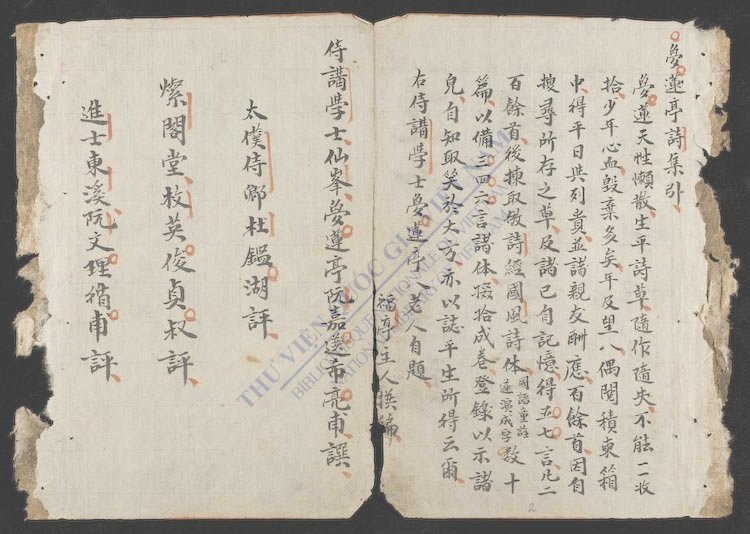 夢蓮亭詩集引
夢蓮天性懶散生平詩草隨作隨失不能一一收
拾少年心血毀棄多矣年及望八偶閱積東箱
中得平日與列貴並諸親友酬應百餘首因自
搜尋所存之草及諸已自記憶得五七言凡二
百餘首後揀取倣詩經國風詩体國語重註遂演成字数十
篇以備三四六言諸体掇拾成卷登錄以示諸
兒自知取笑於大方亦以誌平生所得云爾
右侍講學士夢蓮亭八老人自題
福亭主人
侍講學士仙峯夢蓮亭阮嘉選希亮甫譔
太僕侍卿杜鑑湖評
燦閣堂枚英俊貞叔評
進士東溪阮文理循甫評
THƯ VIỆN QUỐC GIA VIỆT NAM
BIBLIOTHÈQUE NATIONALE DU VIETNAM
NATIONAL LIBRARY OF VIETNAM
2